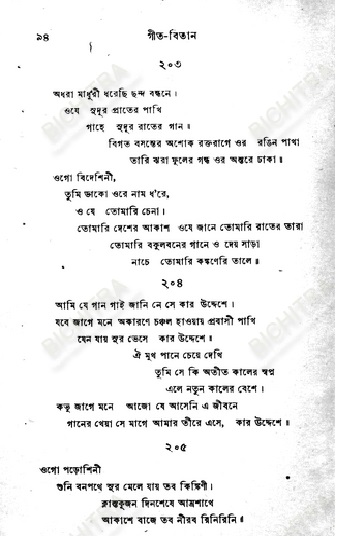 ৯৪ গীত-বিতান
২০৩
অধরা মাধুরী ধরেছি ছন্দ বন্ধনে।
ওযে সুদূর প্রাতের পাখি
গাহে সুদূর রাতের গান॥
বিগত বসন্তের অশোক রক্তরাগে ওর রঙিন পাখা
তারি ঝরা ফুলের গন্ধ ওর অন্তরে ঢাকা॥
ওগো বিদেশিনী,
তুমি ডাকো ওরে নাম ধ'রে,
ও যে তোমারি চেনা।
তোমারি দেশের আকাশ ওযে জানে তোমারি রাতের তারা
তোমারি বকুলবনের গানে ও দেয় সাড়া
নাচে তোমারি কঙ্কণেরি তালে॥
২০৪
আমি যে গান গাই জানি নে সে কার উদ্দেশে।
যবে জাগে মনে অকারণে চঞ্চল হাওয়ায় প্রবাসী পাখি
যেন যায় সুর ভেসে কার উদ্দেশে॥
ঐ মুখ পানে চেয়ে দেখি
তুমি সে কি অতীত কালের স্বপ্ন
এলে নতুন কালের বেশে।
কভু জাগে মনে আজো যে আসেনি এ জীবনে
গানের খেয়া সে মাগে আমার তীরে এসে, কার উদ্দেশে॥
২০৫
ওগো পড়োশিনী
শুনি বনপথে সুর মেলে যায় তব কিঙ্কিণী।
ক্লান্তকূজন দিনশেষে আম্রশাখে
আকাশে বাজে তব নীরব রিনিরিনি॥
BICHITRA